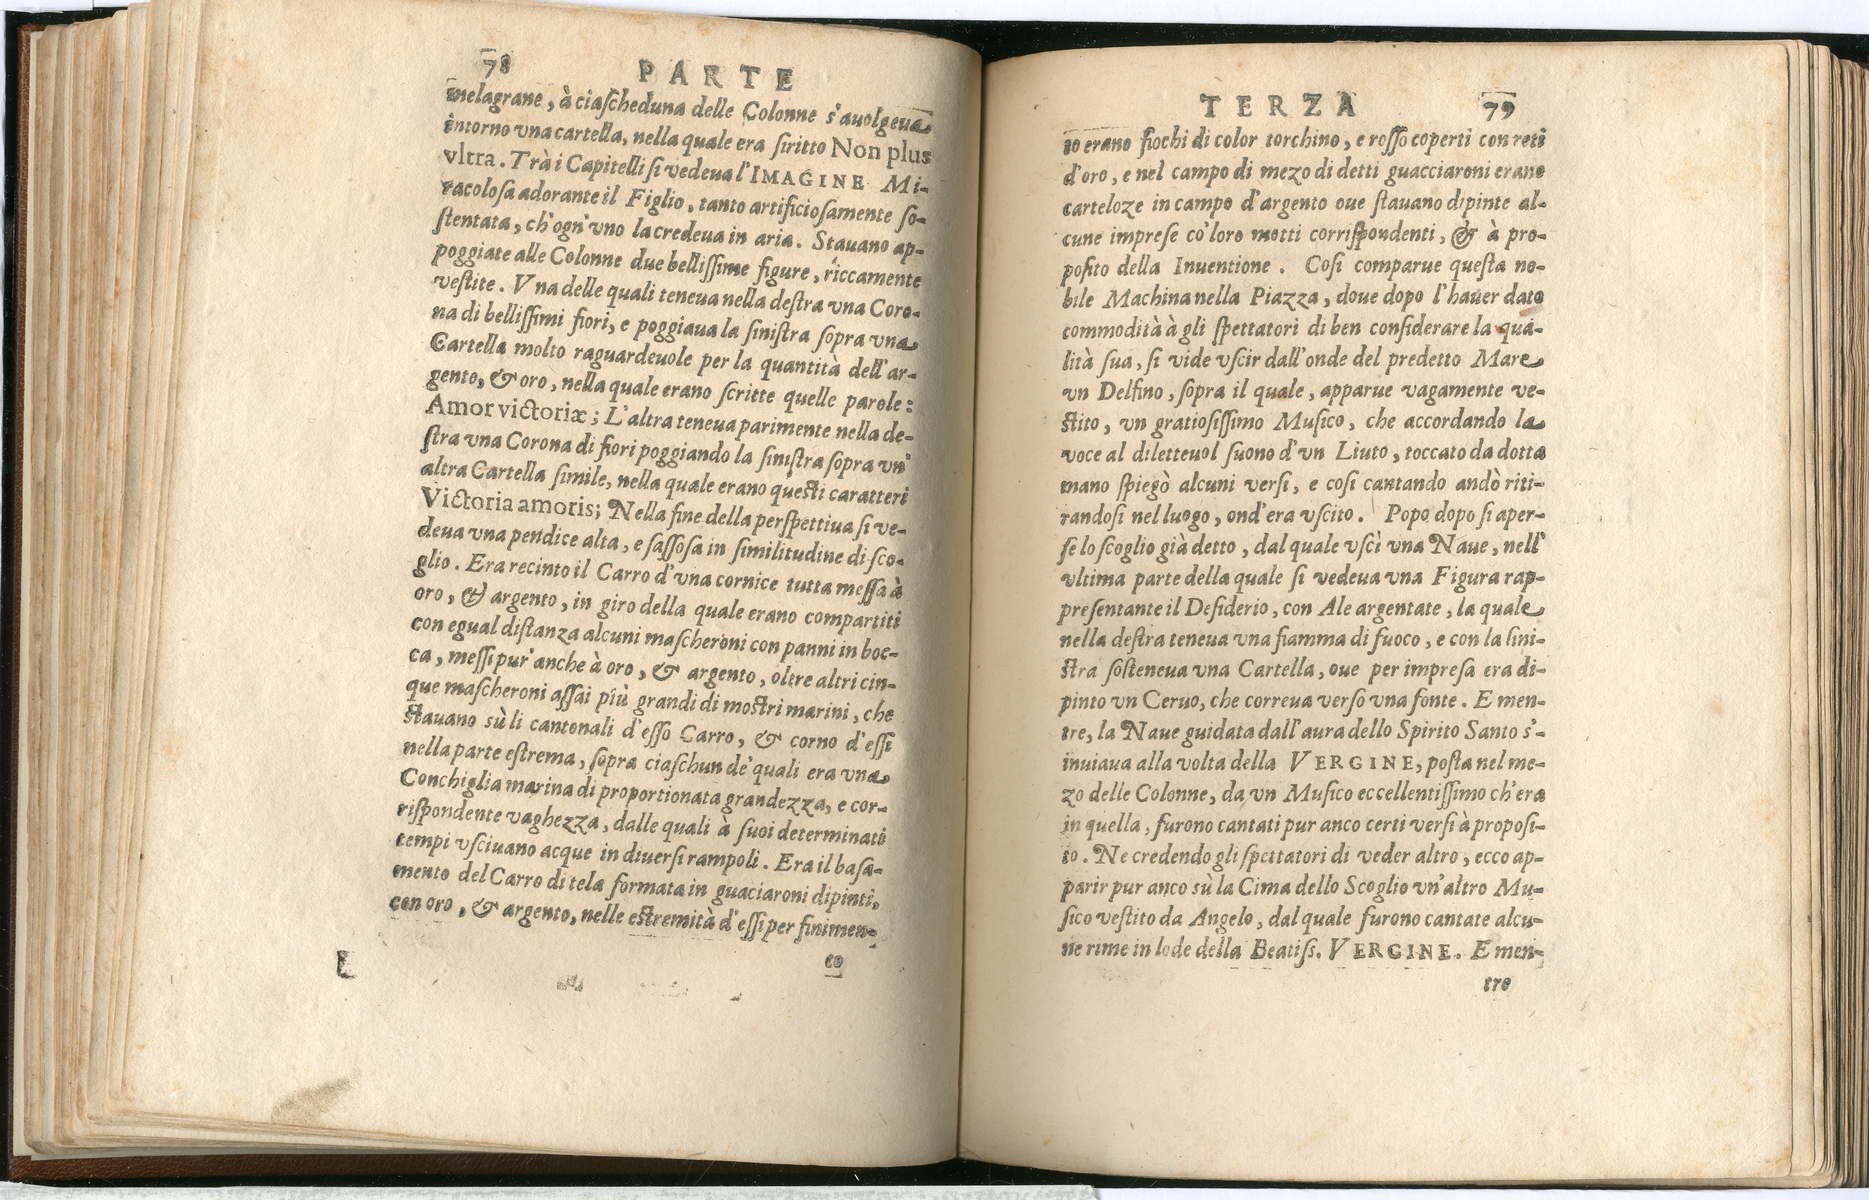 78 PARTE
melagrane, à ciaſcheduna delle Colonne s'auolgeua
intorno vna cartella, nella quale era ſiritto Non plus
vltra. Trà i Capitelli ſi vedeua l'IMAGINE Mi-
racoloſa adorante il Figlio, tanto artificioſamente ſo-
ſtentata, ch'ogn'vno la credeua in aria. Stauano ap-
poggiate alle Colonne due belliſſime figure, riccamente
veſtite. Vna delle quali teneua nella deſtra vna Coro-
na di belliſſimi fiori, e poggiaua la ſiniſtra ſopra vna
Cartella molto raguardeuole per la quantità dell'ar-
gento, & oro, nella quale erano ſcritte quelle parole:
Amor victoriæ; L'altra teneua parimente nella de-
ſtra vna Corona di fiori poggiando la ſiniſtra ſopra vn'
altra Cartella ſimile, nella quale erano queſti caratteri
Victoria amoris; Nella fine della perſpettiua ſi ve-
deua vna pendice alta, e ſaſſoſa in ſimilitudine di ſco-
glio. Era recinto il Carro d'vna cornice tutta meſſa à
oro, & argento, in giro della quale erano compartiti
con egual diſtanza alcuni maſcheroni con panni in boc-
ca, meſſi pur'anche à oro, & argento, oltre altri cin-
que maſcheroni aſſai più grandi di moſtri marini, che
ſtauano sù li cantonali d'eſſo Carro, & corno d'eſſi
nella parte eſtrema, ſopra ciaſchun de'quali era vna
Conchiglia marina di proportionata grandezza, e cor-
riſpondente vaghezza, dalle quali à ſuoi determinati
tempi vſciuano acque in diuerſi rampoli. Era il baſa-
mento del Carro di tela formata in guaciaroni dipinti,
con oro, & argento, nelle eſtremità d'eſſi per finimen-
to
TERZA 79
to erano fiochi di color torchino, e roſſo coperti con reti
d'oro, e nel campo di mezo di detti guacciaroni erano
carteloze in campo d'argento oue ſtauano dipinte al-
cune impreſe co'loro motti corriſpondenti, & à pro-
poſito della Inuentione. Coſi comparue queſta no-
bile Machina nella Piazza, doue dopo l'hauer dato
commodità à gli ſpettatori di ben conſiderare la qua-
lità ſua, ſi vide vſcir dall'onde del predetto Mare
vn Delfino, ſopra il quale, apparue vagamente ve-
ſtito, vn gratioſiſſimo Muſico, che accordando la
voce al diletteuol ſuono d'vn Liuto, toccato da dotta
mano ſpiegò alcuni verſi, e coſi cantando andò riti-
randoſi nel luogo, ond'era vſcito. Popo dopo ſi aper-
ſe lo ſcoglio già detto, dal quale vſcì vna Naue, nell'
vltima parte della quale ſi vedeua vna Figura rap-
preſentante il Deſiderio, con Ale argentate, la quale
nella deſtra teneua vna fiamma di fuoco, e con la ſini-
ſtra ſoſteneua vna Cartella, oue per impreſa era di-
pinto vn Ceruo, che correua verſo vna fonte. E men-
tre, la Naue guidata dall'aura dello Spirito Santo s'-
inuiaua alla volta della VERGINE, poſta nel me-
zo delle Colonne, da vn Muſico eccellentiſſimo ch'era
in quella, furono cantati pur anco certi verſi à propoſi-
to. Ne credendo gli ſpettatori di veder altro, ecco ap-
parir pur anco sù la Cima dello Scoglio vn'altro Mu-
ſico veſtito da Angelo, dal quale furono cantate alcu-
ne rime in lode della Beatiſs. VERGINE. E men-
tre